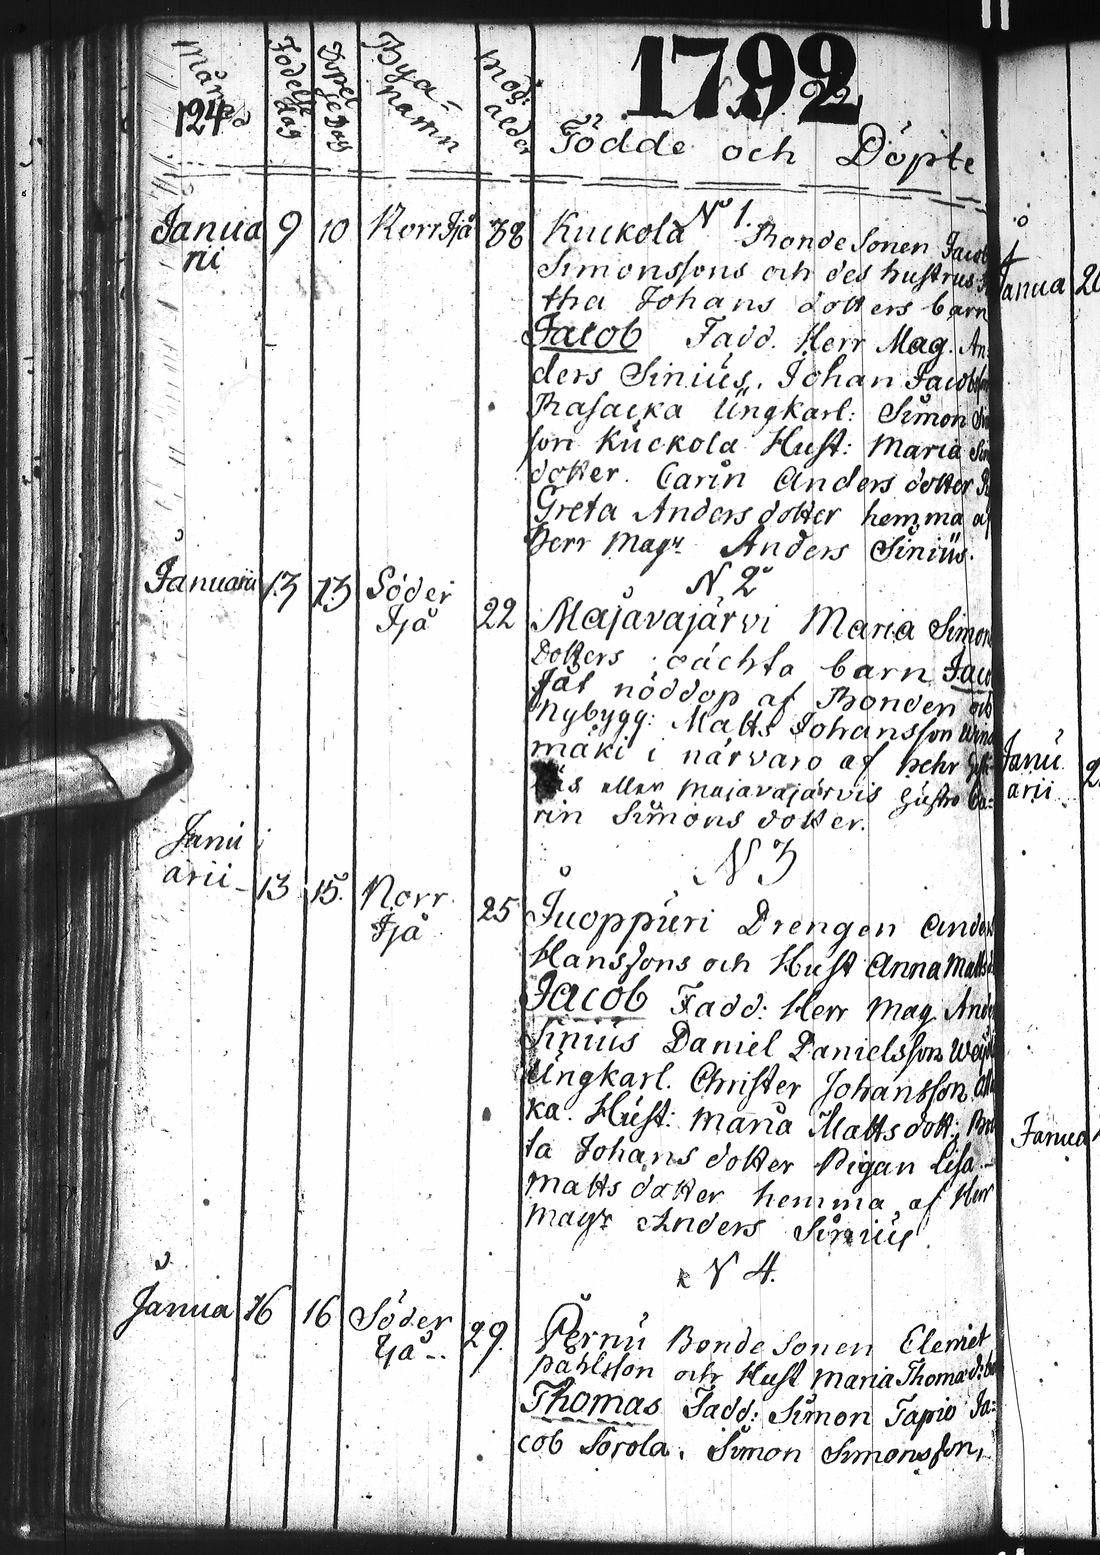 Månad
124
Födelse dag
Döpelse Dag
Bya-
namn
Mod: alder
1792
Födde och Döpte
Nº 1.
Janua
rii
9
10
Norr Ijå
38
Kuckola Bonde Sonen Jacob
Simonssons och des hustrus
tha Johans dotters barn
Jacob Fadd. Herr Mag. An-
ders Sinius. Johan Jacobsson
Rasacka Ungkarl: Simon
son Kuckola Hust: Maria
dotter. Carin Anders dotter
Greta Anders dotter hemma af
Herr Magr. Anders Sinius.
N. 2
Januarii
13
13
Söder
Ijå
22
Majavajärvi Maria Simons
Dotters oächta barn Jacob
fåt nöddop af Bonden och
Nybygg: Matts Johansson
mäki i närvaro af Pehr
eller Majavajärvis hustro Ca-
rin Simons dotter.
N 3
Janu
arii
13
15.
Norr
Ijå
25
Juoppuri Drengen Anders
Hanssons och Hust Anna Matts
Jacob Fadd: Herr Mag. Anders
Sinius Daniel Danielsson
Ungkarl. Christer Johansson
ka. Hust: Maria Matts dott: Bri
ta Johans dotter Pigan Lisa
Matts dotter hemma af Herr
Magr Anders Sinius
N 4.
Janua
16
16
Söder
Ijå
29.
Pernu Bonde Sonen Clemet
Påhlsson och Hust Maria Thomæ d:
Thomas Fadd: Simon Tapio Ja-
cob Sorola. Simon Simonsson,
Janua
20
Janu
arii
Janua